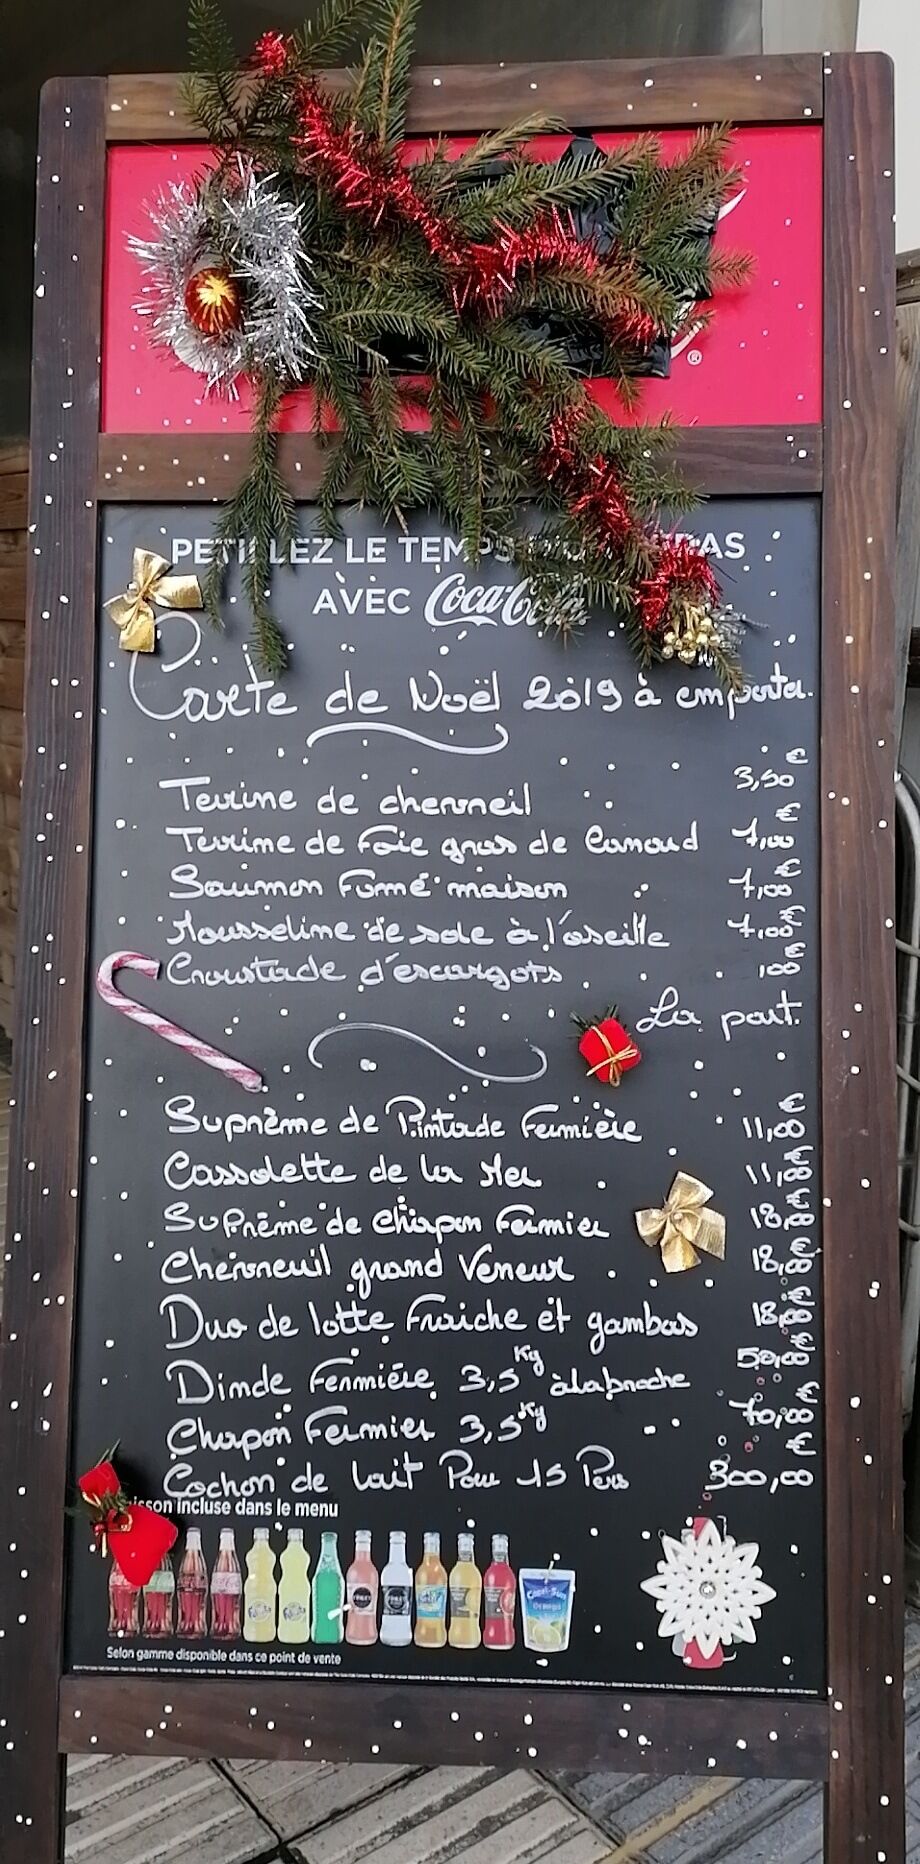 ®
PETILLEZ LE TEMPS REPAS
AVEC Coca-Cola
Carte de Noël 2019 à emporter.
Terrine de chevreuil 3,50€
Terrine de Foie gras de Canard 7,00€
Saumon Fumé maison 7,00€
Mousseline de sole à l'oseille 7,00€
Croustade d'escargots 100€
La part.
Suprême de Pintade Fermière 11,00€
Cassolette de la Mer 11,00€
Suprême de Chapon Fermier 18,00€
Chevreuil grand Veneur 18,00€
Duo de lotte Fraiche et gambas 18,00€
Dinde Fermière 3,5Kg à la broche 50,00€
Chapon Fermier 3,5Kg 70,00€
Cochon de lait Pour 15 Pers 300,00€
isson incluse dans le menu
Capri-Sun
Selon gamme disponible dans ce point de vente